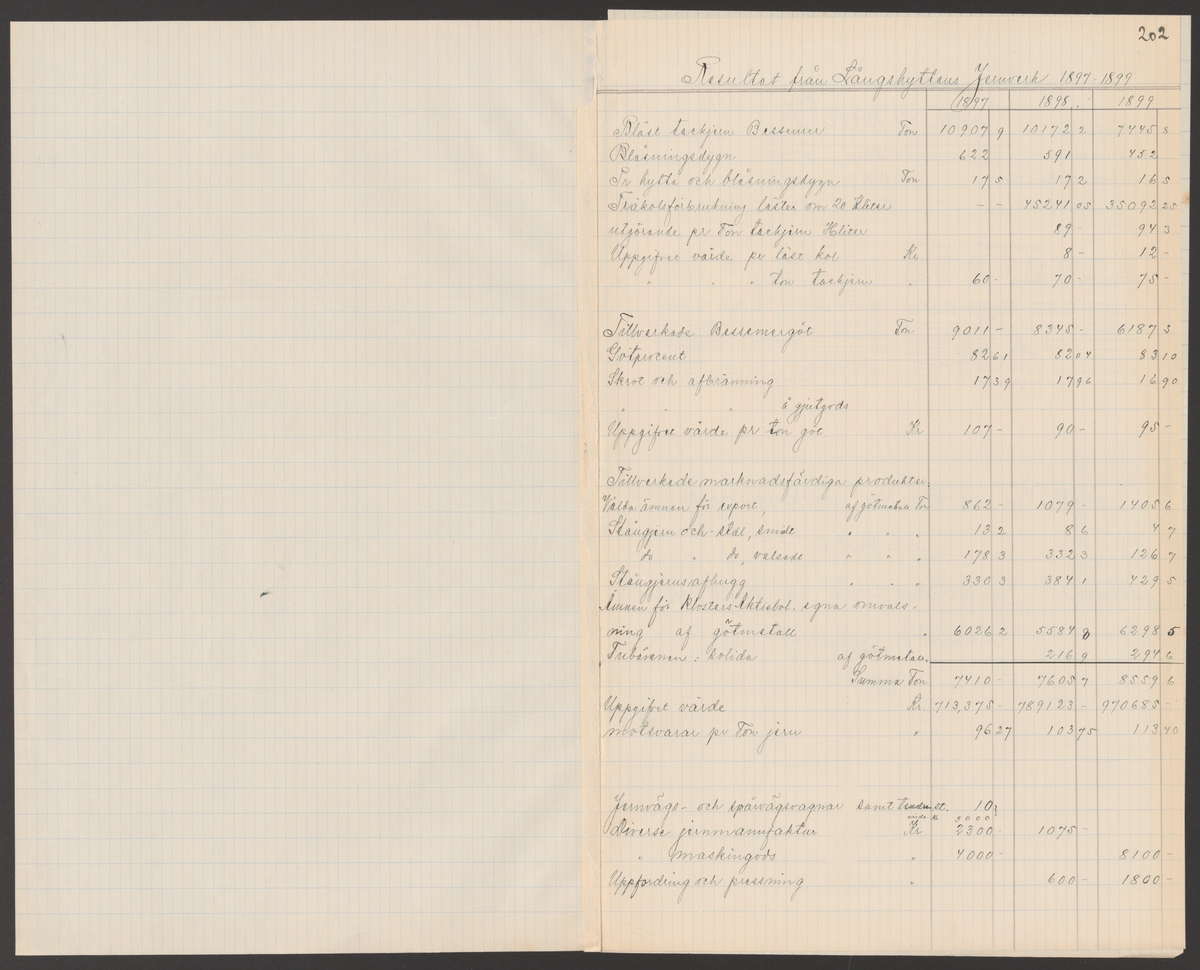 202
Resultat från Långshyttans Jernverk 1897-1899
1897 1898. 1899
Blåst tackjern Bessemer Ton 10907 9 10172 2 7445 8
Blåsningsdygn 622 591 452
Pr hytta och blåsningsdygn Ton 17 5 17 2 16 5
Träkolsförbrukning läster om 20 Hliter - - 45241 05 35092 25
utgörande pr Ton tackjern Hliter 89 - 94 3
Uppgifvet värde pr läst kol Kr 8 - 12 -
" " " ton tackjern " 60 - 70 - 75 -
Tillverkade Bessemergöt Ton 9011 - 8345 - 6187 3
Götprocent 82 61 82 04 83 10
Skrot och afbränning 17 39 17 96 16 90
" " " å gjutgods
Uppgifvet värde pr ton göt Kr 107 - 90 - 95 -
Tillverkade marknadsfärdiga produkter.
Välda ämnen för export, af götmetall Ton 862 - 1079 - 1405 6
Stångjern och stål, smidt " " " 13 2 8 6 4 7
do " do, valsade " " " 178 3 332 3 126 7
Stångjernsafhugg " " " 330 3 384 1 429 5
Ämnen för Klosters Aktiebol. egna omvals-
ning af götmetall " 6026 2 5584 8 6298 5
Tubämnen: solida af götmetall. 216 9 294 6
Summa Ton 7410 - 7605 7 8559 6
Uppgifvet värde Kr 713,375 - 789123 - 970685 -
motsvarar pr Ton jern " 96 27 103 75 113 40
Jernvägs- och spårvägsvagnar samt tender, st. 10
värde k 3000
Diverse jernmanufaktur Kr 2300 - 1075 -
" maskingods " 4000 - 8100 -
Uppfordring och pressning " 600 - 1800 -